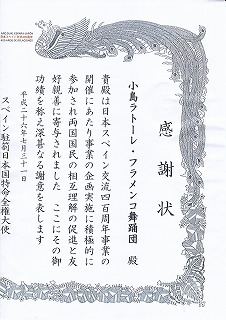 感謝状
小島ラトーレ・フラメンコ舞踊団 殿
貴殿は日本スペイン交流四百周年事業の
開催にあたり事業の企画実施に積極的に
参加され両国国民の相互理解の促進と友
好親善に寄与されました ここにその御
功績を称え深甚なる謝意を表します
平成二十六年七月三十一日
スペイン駐箚日本国特命全権大使